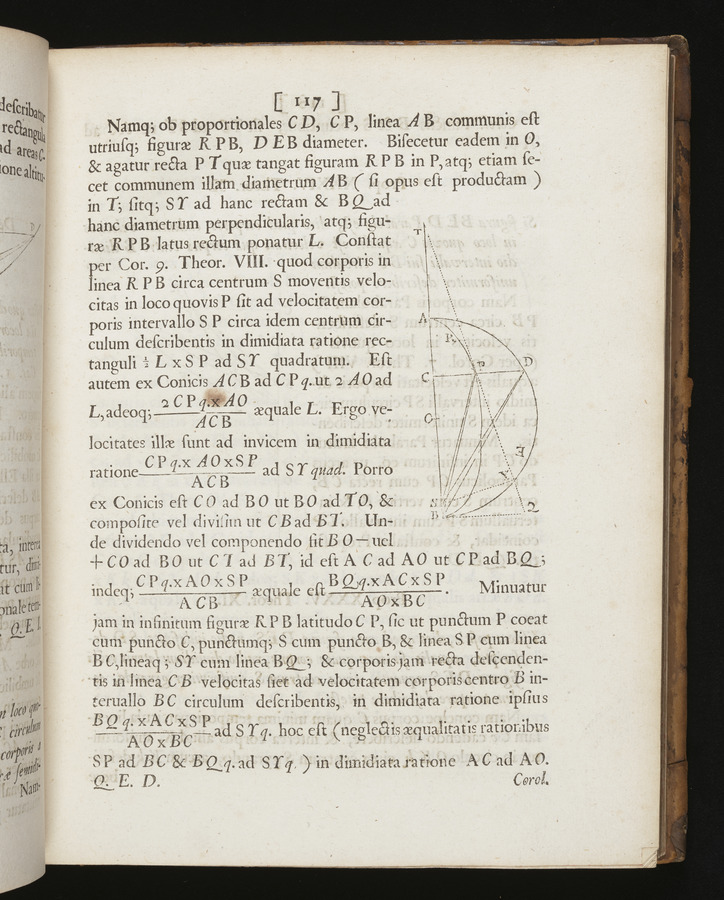 [ 117 ]
Namq; ob proportionales CD, CP, linea AB communis eſt
utriuſq; figuræ RPB, DEB diameter. Biſecetur eadem in O,
& agatur recta PT quæ tangat figuram RPB in P, atq; etiam ſe-
cet communem illam diametrum AB ( ſi opus eſt productam )
in T; ſitq; SY ad hanc rectam & BQ ad
hanc diametrum perpendicularis, atq; figu-
ræ RPB latus rectum ponatur L. Conſtat
per Cor. 9. Theor. VIII. quod corporis in
linea RPB circa centrum S moventis velo-
citas in loco quovis P ſit ad velocitatem cor-
poris intervallo SP circa idem centrum cir-
culum deſcribentis in dimidiata ratione rec-
tanguli ½ L x SP ad SY quadratum. Eſt
autem ex Conicis ACB ad CPq. ut 2 AO ad
L, adeoq; 2CPq.x AO / ACB æquale L. Ergo ve-
locitates illæ ſunt ad invicem in dimidiata
ratione CPq.x AOxSP / ACB ad SY quad. Porro
ex Conicis eſt CO ad BO ut BO ad TO, &
compoſite vel diviſim ut CB ad BT. Un-
de dividendo vel componendo fit BO – uel
+ CO ad BO ut CT ad BT, id eſt AC ad AO ut CP ad BQ;
indeq; CPq.xAOxSP / ACB æquale eſt BQq.xACxSP / AOxBC. Minuatur
jam in infinitum figuræ RPB latitudo CP, ſic ut punctum P coeat
cum puncto C, punctumq; S cum puncto B, & linea SP cum linea
BC, lineaq; SY cum linea BQ; & corporis jam recta deſcenden-
tis in linea CB velocitas fiet ad velocitatem corporis centro B in-
teruallo BC circulum deſcribentis, in dimidiata ratione ipſius
BQq.xACxSP / AOxBC ad SYq. hoc eſt (neglectis æqualitatis rationibus
SP ad BC & BQq. ad SYq. ) in dimidiata ratione AC ad AO.
Q. E. D.
Corol.
T
A
P
p
C
D
O
E
Y
S
B
Q